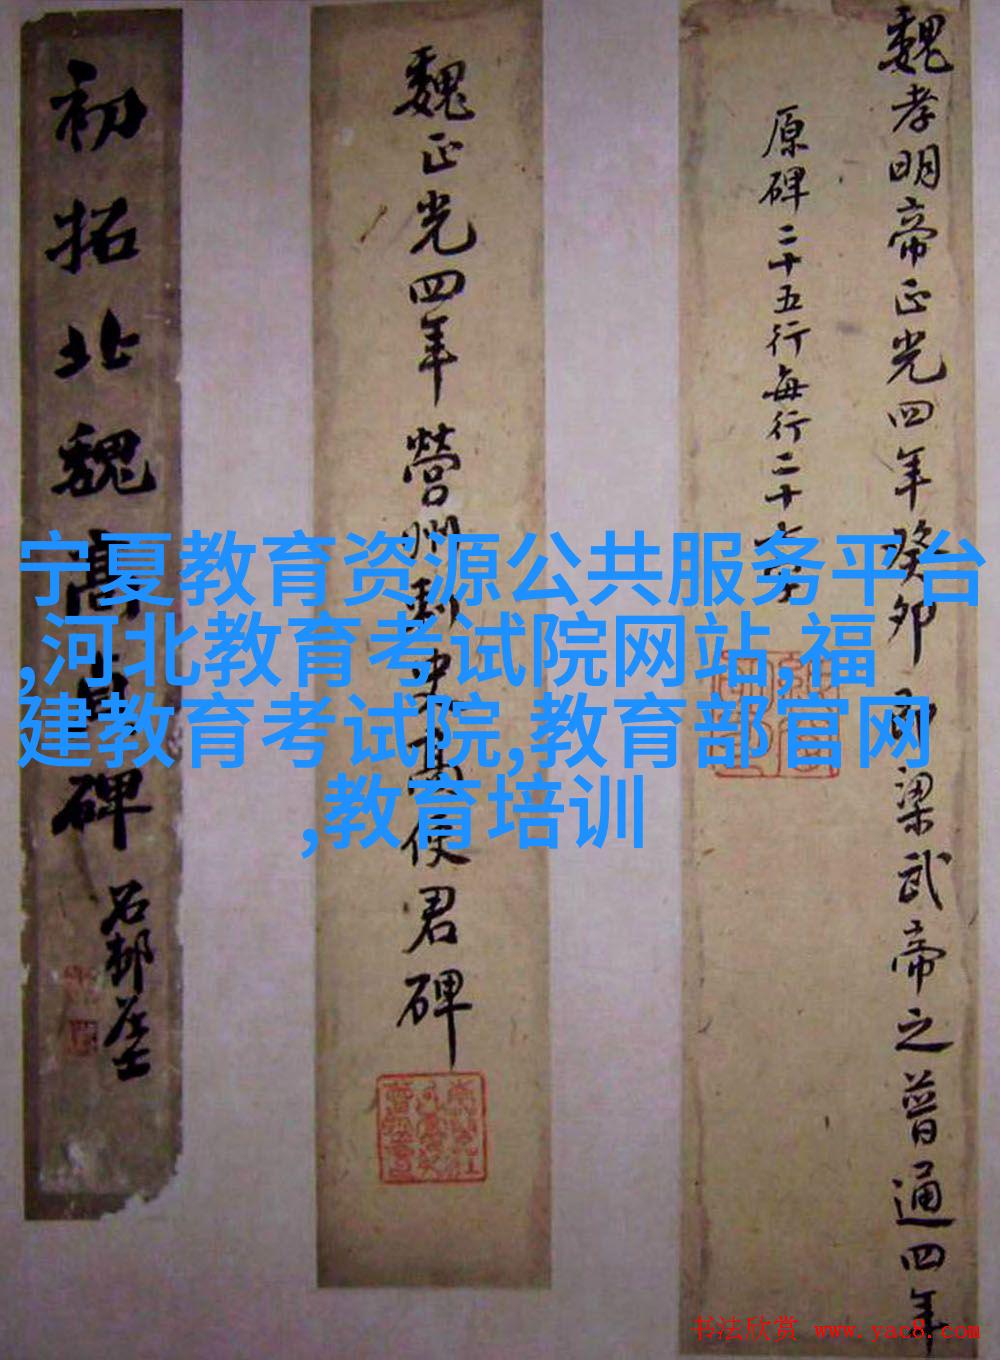 魏孝明帝正光四年癸卯即梁武帝之普通四年
原碑二十五行每行二十六字
魏正光四年營州刺史高使君碑
初拓北魏高貞碑
石邨居士
宁夏教育资源公共服务平台
,河北教育考试院网站,福
建教育考试院,教育部官网
,教育培训
书法欣赏 www.yac8.com